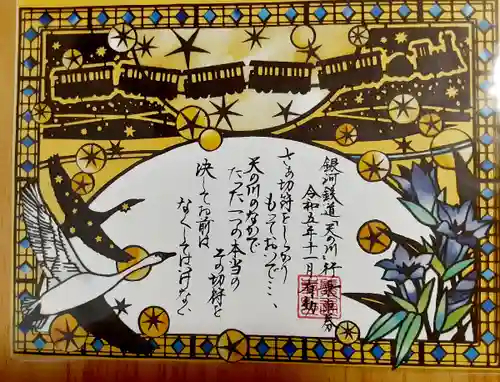 銀河鉄道「天の川」行
乗車券
令和五年十一月
有効
さあ切符をしっかり
もっておいで…、
天の川のなかで
たった一つの本当の
その切符を
決してお前は
なくしてはいけない